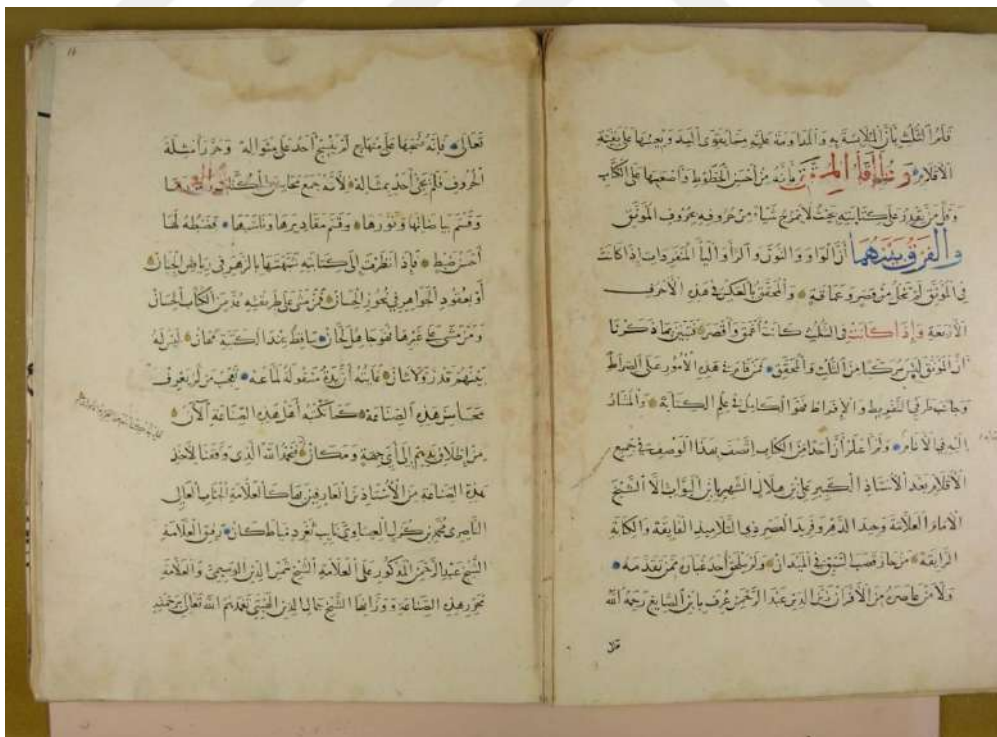 قلم الثلث بأن الملابسة به والمداومة عليه مما يقوى اليد ويعينها على بقية
الأقلام
من أحسن الخطوط وأصعبها على الكتاب
وقل من يقدر على كتابته بحيث لا يمزج شيأ من حروفه بحروف الموثق
والفرق بينهما أن الواو والنون والرا واليأ المفردات إذا كانت
في الموثق لم تخل من قصر وعماقة والمحقق بالعكس في هذه الأحرف
الأربعة وإذا كانت في الثلث كانت أعمق وأقصر فتبين بما ذكرنا
أن الموثق ليس مركبا من الثلث والمحقق فمن قام في هذه الأمور على الصراط
وجانب طرفي التفريط والإفراط فهو الكامل في علم الكتابة والمشار
إليه في الأنام ولم أعلم أن أحدا من الكتاب اتصف بهذا الوصف في جميع
الأقلام بعد الأستاذ الكبير على بن هلال الشهير بابن البواب إلا الشيخ
الإمام العلامة وحيد الدهر وفريد العصر ذي التلاميذ الفايقة والكتابة
الرايقة من حاز قصب السبق في الميدان ولم يلحق أحد غباره ممن تقدمه
ولا من عاصره من الأقران زين الدين عبد الرحمن عرف بابن الصايغ رحمه الله
تعالى فإنه نهجها على منهاج لم ينسج أحد على منواله وحرر أمثلة
الحروف فلم يجئ أحد بمثاله لأنه جمع محاسن
وقسم بياضاتها ونورها وقسم مقاديرها وناسبها فضبطه لها
أحسن ضبط فإذا نظرت إلى كتابته شبهتها بالزهر في رياض الجنان
أو بعقود الجواهر في نحور الحسان فمن مشى على طريقته عد من الكتاب الحسان
ومن مشى على غيرها فهو جاهل ساقط عند الكتبة مهان ليس له
بينهم قدر ولا شان
محاسن هذه الصناعة كما كتبه أهل هذه الصناعة الآن
من إطلاق يديهم إلى أي جهة ومكان فنحمد الله الذي وفقنا لأخذ
هذه الصناعة من الأستاذين العارفين بها كالعلامة الجناب العالي
الناصري محمد بن نايب ثغر دمياط كان رفيق العلامة
الشيخ عبد الرحمن المذكور على العلامة الشيخ شمس الدين الوسيمي والعلامة
محرر هذه الصناعة الشيخ جمال الدين الهيتي تغمدهم الله تعالى برحمته